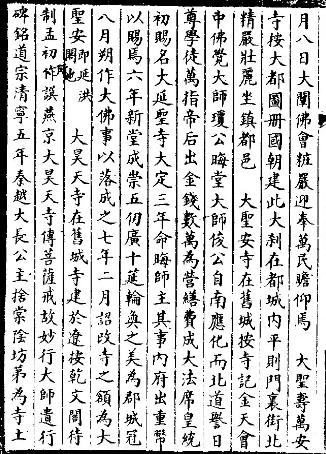 月八日大闡佛會粧嚴迎奉萬民瞻仰焉　大聖壽萬安
寺按大都圖冊國朝建此大刹在都城內平則門裏街北
精嚴壯麗坐鎮都邑　大聖安寺在舊城按寺記金天會
中佛覺大師瓊公晦堂大師俊公自南應化而北道譽日
尊學徒萬指帝后出金錢數萬為營繕費成大法席皇統
初賜名大延聖寺大定三年命晦師主其事內府出重幣
以賜焉六年新堂成崇五仞廣十筵輪奐之美為郡城冠
八月朔作大佛事以落成之七年二月詔改寺之額為大
聖安即延洪閣也　大昊天寺在舊城寺建於遼按乾文閣待
制孟初作譔燕京大昊天寺傳菩薩戒故妙行大師遺行
碑銘道宗清寧五年秦越大長公主捨棠陰坊第為寺土